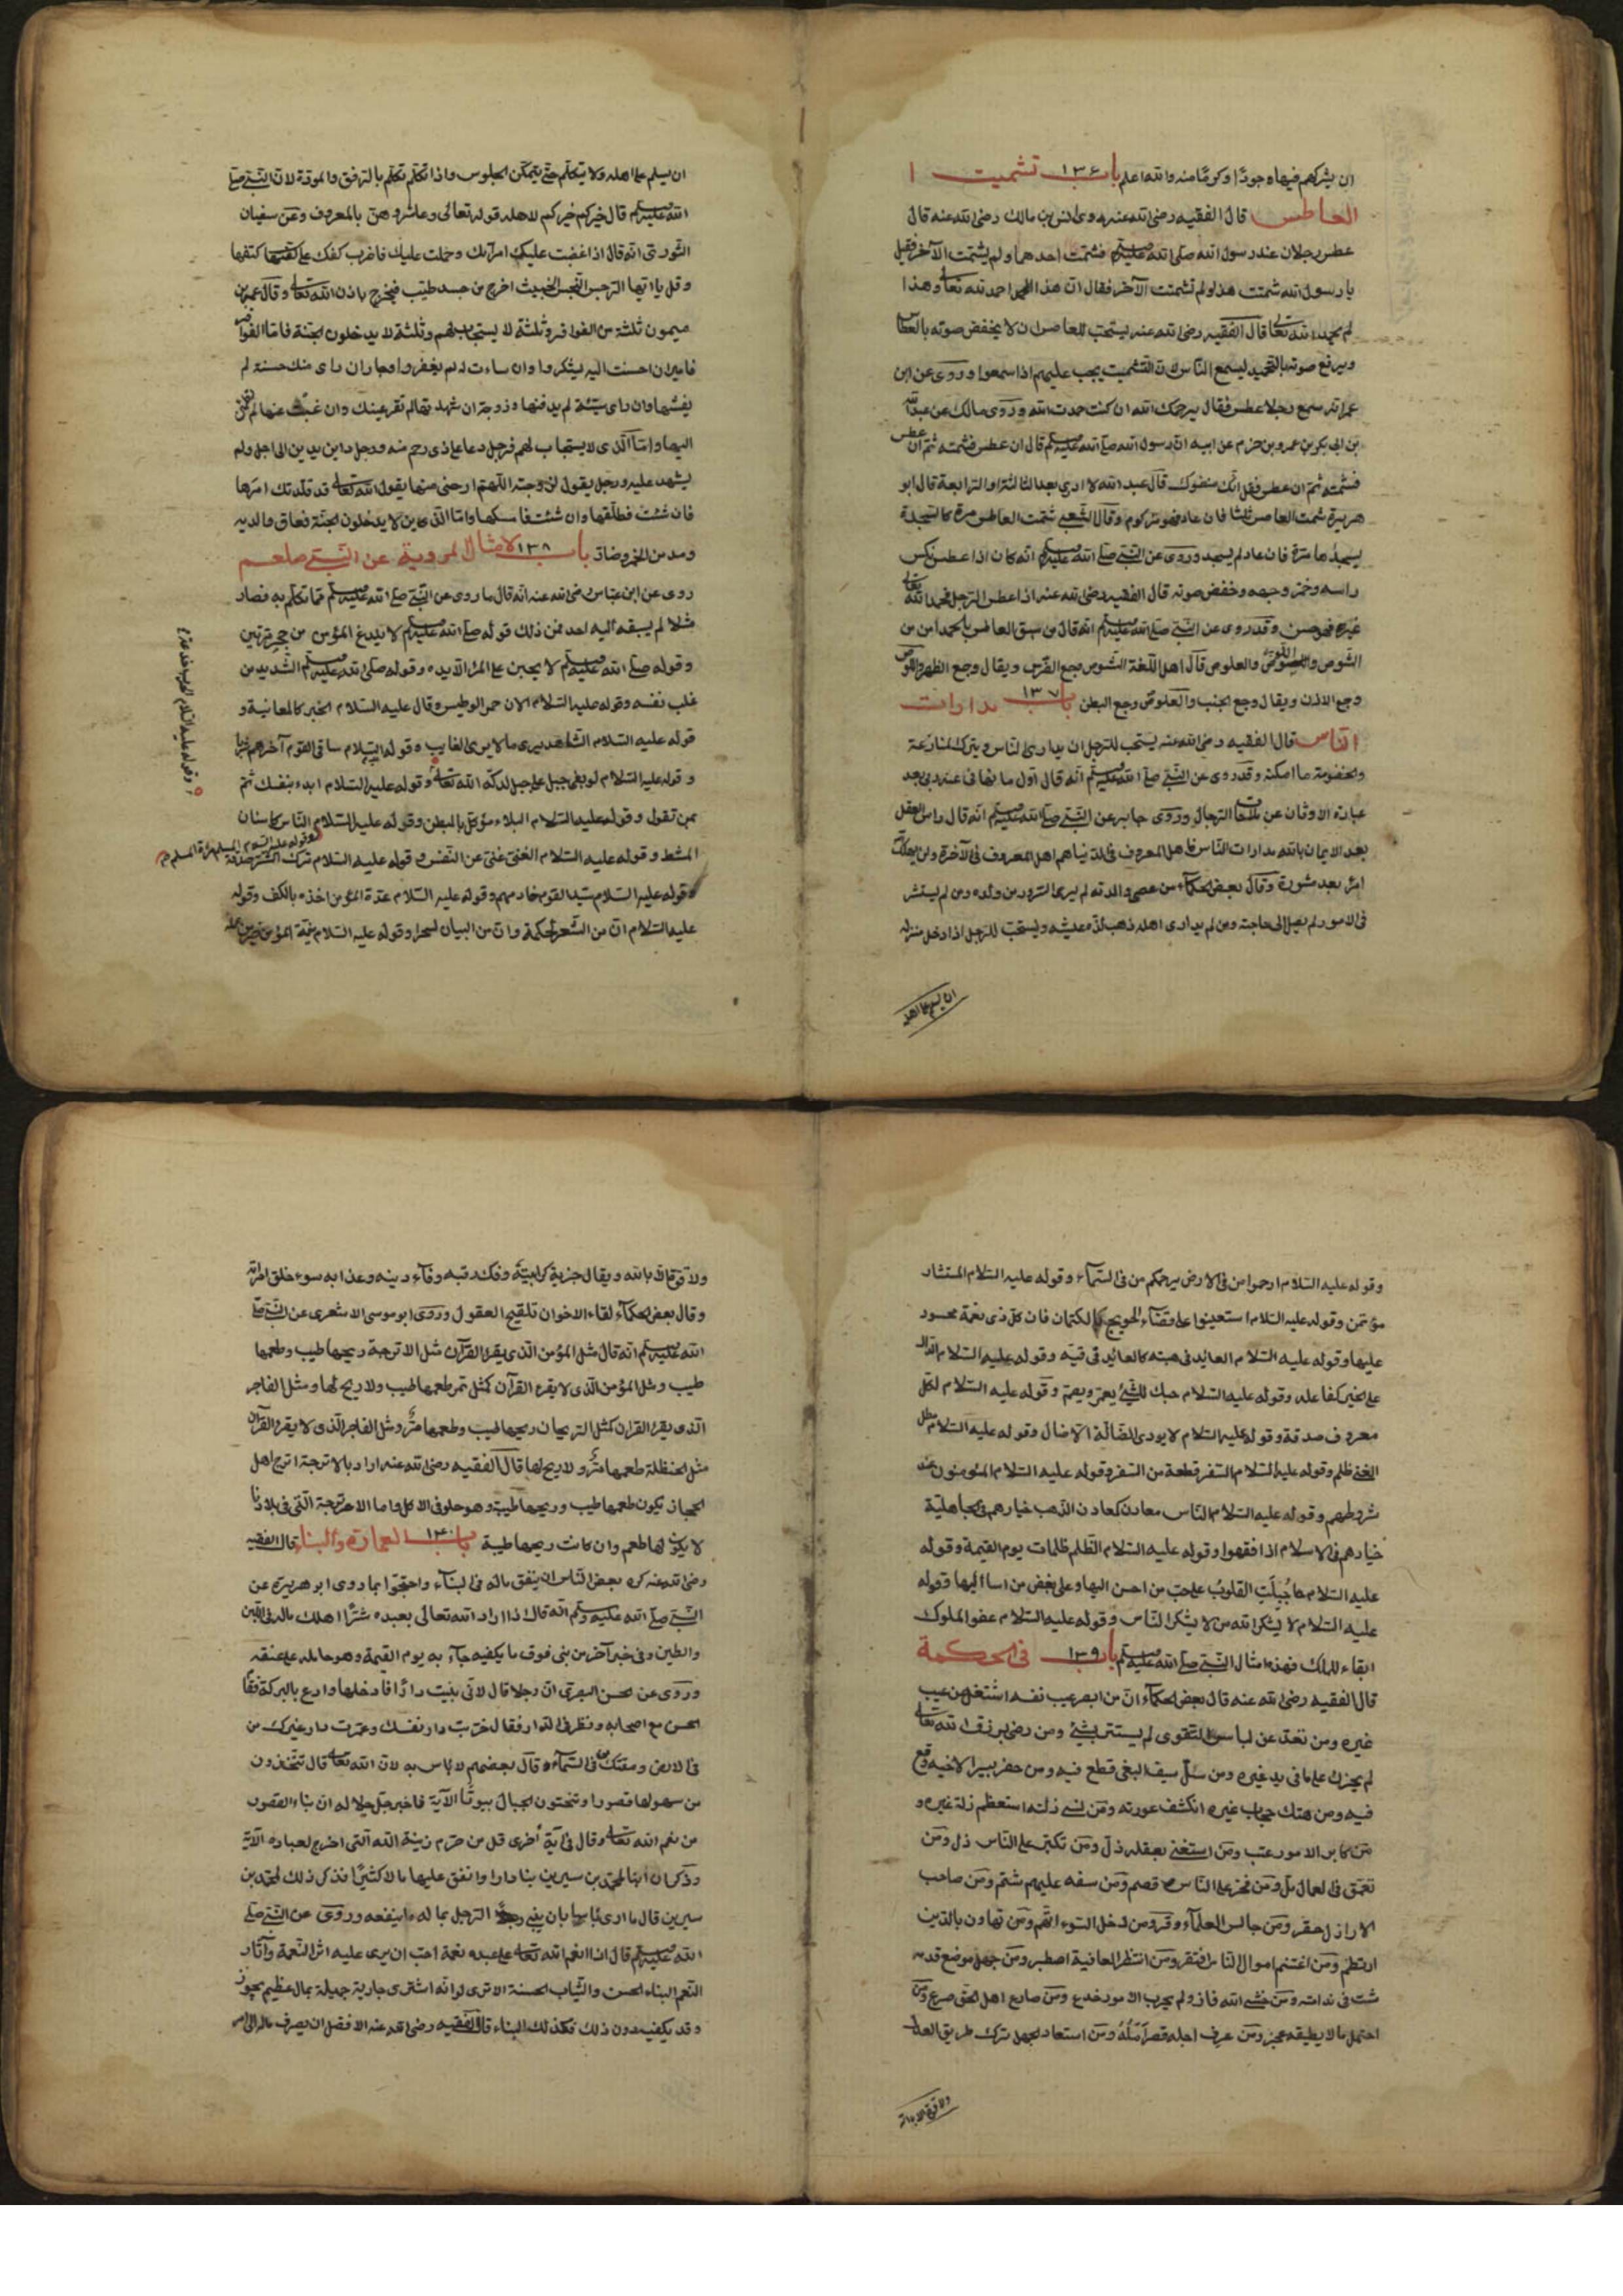 ان يشركهم فيها جودًا وكرمًا منه والله اعلم باب ١٣٦ تشميت
العاطس قال الفقيه رضى الله عنه روى انس بن مالك رضى الله عنه قال
عطس رجلان عند رسول الله صلى الله عليه وسلم فشمت احدهما ولم يشمت الآخر فقيل
يا رسول الله شمت هذا ولم تشمت الآخر فقال ان هذا حمد الله تعالى وهذا
لم يحمد الله تعالى قال الفقيه رضى الله عنه يستحب للعاطس ان لا يخفض صوته بالعطاس
ويرفع صوته بالتحميد ليسمع الناس لان التشميت يجب عليهم اذا سمعوا وروى عن ابن
عمر انه سمع رجلا عطس فقال يرحمك الله ان كنت حمدت الله وروى مالك عن عبد الله
بن ابى بكر بن عمرو بن حزم عن ابيه ان رسول الله صلى الله عليه وسلم قال ان عطس فشمته ثم ان عطس
فشمته ثم ان عطس فقل انك مضنوك قال عبد الله لا ادرى بعد الثالثة او الرابعة قال ابو
هريرة شمت العاطس ثلثا فان عاد فهو مزكوم وقال الشعبى شمت العاطس مرة كالسجدة
يسجدها مرة فان عاد لم يسجد وروى عن النبى صلى الله عليه وسلم انه كان اذا عطس نكس
راسه وخمر وجهه وخفض صوته قال الفقيه رضى الله عنه اذا عطس الرجل فحمد الله تعالى
غيره فهو حسن وقد روى عن النبى صلى الله عليه وسلم انه قال من سبق العاطس بالحمد امن من
الشوص واللوص والعلوص قال اهل اللغة الشوص وجع الضرس ويقال وجع الظهر واللوص
وجع الاذن ويقال وجع الجنب والعلوص وجع البطن باب ١٣٧ مدارات
الناس قال الفقيه رضى الله عنه يستحب للرجل ان يدارى الناس ويترك المنازعة
والخصومة ما امكنه وقد روى عن النبى صلى الله عليه وسلم انه قال اول ما نهانى عنه ربى بعد
عبادة الاوثان عن ملاحات الرجال وروى جابر عن النبى صلى الله عليه وسلم انه قال راس العقل
بعد الايمان بالله مدارات الناس واهل المعروف فى الدنيا هم اهل المعروف فى الآخرة ولن يهلك
امرؤ بعد مشورة وقال بعض الحكماء من عصى والدته لم يرى السرور من ولده ومن لم يستشر
فى الامور لم يصل الى حاجته ومن لم يدارى اهله ذهب لذة عيشه ويستحب للرجل اذا دخل منزله
ان يسلم على اهله
ان يسلم على اهله ولا يتكلم حتى يتمكن الجلوس واذا تكلم تكلم بالترفق والمودة لان النبى صلى
الله عليه وسلم قال خيركم خيركم لاهله قوله تعالى وعاشروهن بالمعروف وعن سفيان
الثورى انه قال اذا غضبت عليك امرأتك ودخلت عليك فاضرب كفك على كتفها
وقل يا ايها الرجس النجس الخبيث اخرج من جسد طيب فيخرج باذن الله تعالى وقال عمرو بن
ميمون ثلثة من الفواقر وثلثة لا يستجاب لهم وثلثة لا يدخلون الجنة فاما الفواقر
فامير ان احسنت اليه لم يشكر وان ساءت له لم يغفر وجار ان راى منك حسنة لم
يفشها وان راى سيئة لم يدفنها وزوجة ان شهدتها لم تقر عينك وان غبت عنها لم تطمئن
اليها واما الذى لا يستجاب لهم فرجل دعا على ذى رحم منه ورجل داين بدين الى اجل ولم
يشهد عليه ورجل يقول لزوجته اللهم ارحنى منها يقول الله تعالى قد قلدتك امرها
فان شئت فطلقها وان شئت فامسكها واما الذين لا يدخلون الجنة فعاق والديه
ومدمن الخمر ومنان باب ١٣٨ الامثال المروية عن النبى صلعم
روى عن ابن عباس رضى الله عنه انه قال ما روى عن النبى صلى الله عليه وسلم مما تكلم به فصار
مثلا لم يسبقه اليه احد فمن ذلك قوله صلى الله عليه وسلم لا يلدغ المؤمن من جحر مرتين
وقوله صلى الله عليه وسلم لا يجنى على المرء الا يده وقوله صلى الله عليه وسلم الشديد من
غلب نفسه وقوله عليه السلام الان حمى الوطيس وقال عليه السلام الخبر كالمعاينة و
قوله عليه السلام الشاهد يرى ما لا يرى الغايب وقوله عليه السلام ساقى القوم آخرهم شربا
وقوله عليه السلام لو بغى جبل على جبل لدكه الله تعالى وقوله عليه السلام ابدء بنفسك ثم
بمن تعول وقوله عليه السلام البلاء موكل بالمنطق وقوله عليه السلام الناس كاسنان
المشط وقوله عليه السلام الغنى غنى عن النفس وقوله عليه السلام ترك الشر صدقة
وقوله عليه السلام المسلم مرآة المسلم
وقوله عليه السلام سيد القوم خادمهم وقوله عليه السلام عدة المؤمن اخذه بالكف وقوله
عليه السلام ان من الشعر لحكمة وان من البيان لسحرا وقوله عليه السلام نية المؤمن خير من عمله
وقوله عليه السلام الحرب خدعة
وقوله عليه السلام ارحموا من فى الارض يرحمكم من فى السماء وقوله عليه السلام المستشار
مؤتمن وقوله عليه السلام استعينوا على قضاء الحوايج بالكتمان فان كل ذى نعمة محسود
عليها وقوله عليه السلام العايد فى هبته كالعايد فى قيئه وقوله عليه السلام الدال
على الخير كفاعله وقوله عليه السلام حبك للشئ يعمى ويصم وقوله عليه السلام لكل
معروف صدقة وقوله عليه السلام لا يودى الضالة الا ضال وقوله عليه السلام مطل
الغنى ظلم وقوله عليه السلام السفر قطعة من السقر وقوله عليه السلام المؤمنون عند
شروطهم وقوله عليه السلام الناس معادن كمعادن الذهب خيارهم فى الجاهلية
خيارهم فى الاسلام اذا فقهوا وقوله عليه السلام الظلم ظلمات يوم القيمة وقوله
عليه السلام جُبِلَتِ القلوبُ على حب من احسن اليها وعلى بغض من اسا اليها وقوله
عليه السلام لا يشكر الله من لا يشكر الناس وقوله عليه السلام عفو الملوك
ابقاء للملك فهذه امثال النبى صلى الله عليه وسلم باب ١٣٩ فى الحكمة
قال الفقيه رضى الله عنه قال بعض الحكماء ان من ابصر عيب نفسه اشتغل عن عيب
غيره ومن تعد عن لباس التقوى لم يستتر بشئ ومن رضى برزق الله تعالى
لم يحزن على ما فى يد غيره ومن سل سيف البغى قطع فيه ومن حفر بيرا لاخيه وقع
فيه ومن هتك حجاب غيره انكشف عورته ومن نسى زلته استعظم زلة غيره و
من كابر الامور عتب ومن استغنى بعقله ذل ومن تكبر على الناس ذل ومن
تعمق فى العمل مل ومن فخر على الناس قصم ومن سفه عليهم شتم ومن صاحب
الاراذل حقر ومن جالس العلماء وقر ومن دخل السوء اتهم ومن تهاون بالدين
ارتطم ومن اغتنم اموال الناس افتقر ومن انتظر العافية اصطبر ومن جهل موضع قدمه
مشى فى ندامة ومن خشى الله فاز ولم يجرب الامور خدع ومن صارع اهل الحق صرع ومن
احتمل ما لا يطيقه عجز ومن عرف اجله قصر امله ومن استعاد الجهل ترك طريق العدل
ولا قوة الا بالله
ولا قوة الا بالله ويقال
وقال بعض الحكماء لقاء الاخوان تلقيح العقول وروى ابو موسى الاشعرى عن النبى صلى
الله عليه وسلم انه قال مثل المؤمن الذى يقرء القرآن مثل الاترجة ريحها طيب وطعمها
طيب ومثل المؤمن الذى لا يقرء القرآن كمثل تمر طعمها طيب ولا ريح لها ومثل الفاجر
الذى يقرء القران كمثل الريحان ريحها طيب وطعمها مرٌ ومثل الفاجر الذى لا يقرء القرآن
مثل الحنظلة طعمها مرٌ ولا ريح لها قال الفقيه رضى الله عنه اراد بالاترجة اترج اهل
الحجاز يكون طعمها طيب وريحها طيب وهو حلو فى الاكل واما الاترجة التى فى بلادنا
لا يكون لها طعم وان كانت ريحها طيبة باب ١٤٠ العمارة والبناء قال الفقيه
رضى الله عنه كره بعض الناس ان ينفق ماله فى البناء واحتجوا بما روى ابو هريرة عن
النبى صلى الله عليه وسلم انه قال اذا اراد الله تعالى بعبده شرًا اهلك ماله فى اللبن
والطين وفى خبر آخر من بنى فوق ما يكفيه جآء به يوم القيمة وهو حامله على عنقه
وروى عن الحسن البصرى ان رجلا قال له انى بنيت دارًا فادخلها وادع بالبركة فقام
الحسن مع اصحابه ونظر فى الدار فقال خربت دار نفسك وعمرت دار غيرك من
فى الارض ومقتك من فى السماء وقال بعضهم لا باس به لان الله تعالى قال تتخذون
من سهولها قصورا وتنحتون الجبال بيوتًا الآية فاخبر جل جلاله ان بناء القصور
من نعم الله تعالى وقال فى آية أخرى قل من حرم زينة الله التى اخرج لعباده الآية
وذكر ان ابنا لمحمد بن سيرين بنا دارا وانفق عليها مالا كثيرًا فذكر ذلك لمحمد بن
سيرين قال ما ارى باسا بان يبنى الرجل بماله ما ينفعه وروى عن النبى صلى
الله عليه وسلم قال اذا انعم الله تعالى على عبده نعمة احب ان يرى عليه اثر النعمة وآثار
النعم البناء الحسن والثياب الحسنة الا ترى لو انه اشترى جارية جميلة بمال عظيم يجوز
وقد يكفيه دون ذلك فكذلك البناء قال الفقيه رضى الله عنه الافضل ان يصرف ماله الى امر